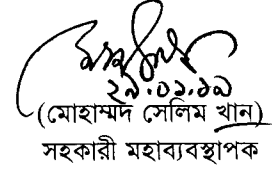 ২৯.০১.১৯
(মোহাম্মদ সেলিম খান)
সহকারী মহাব্যবস্থাপক